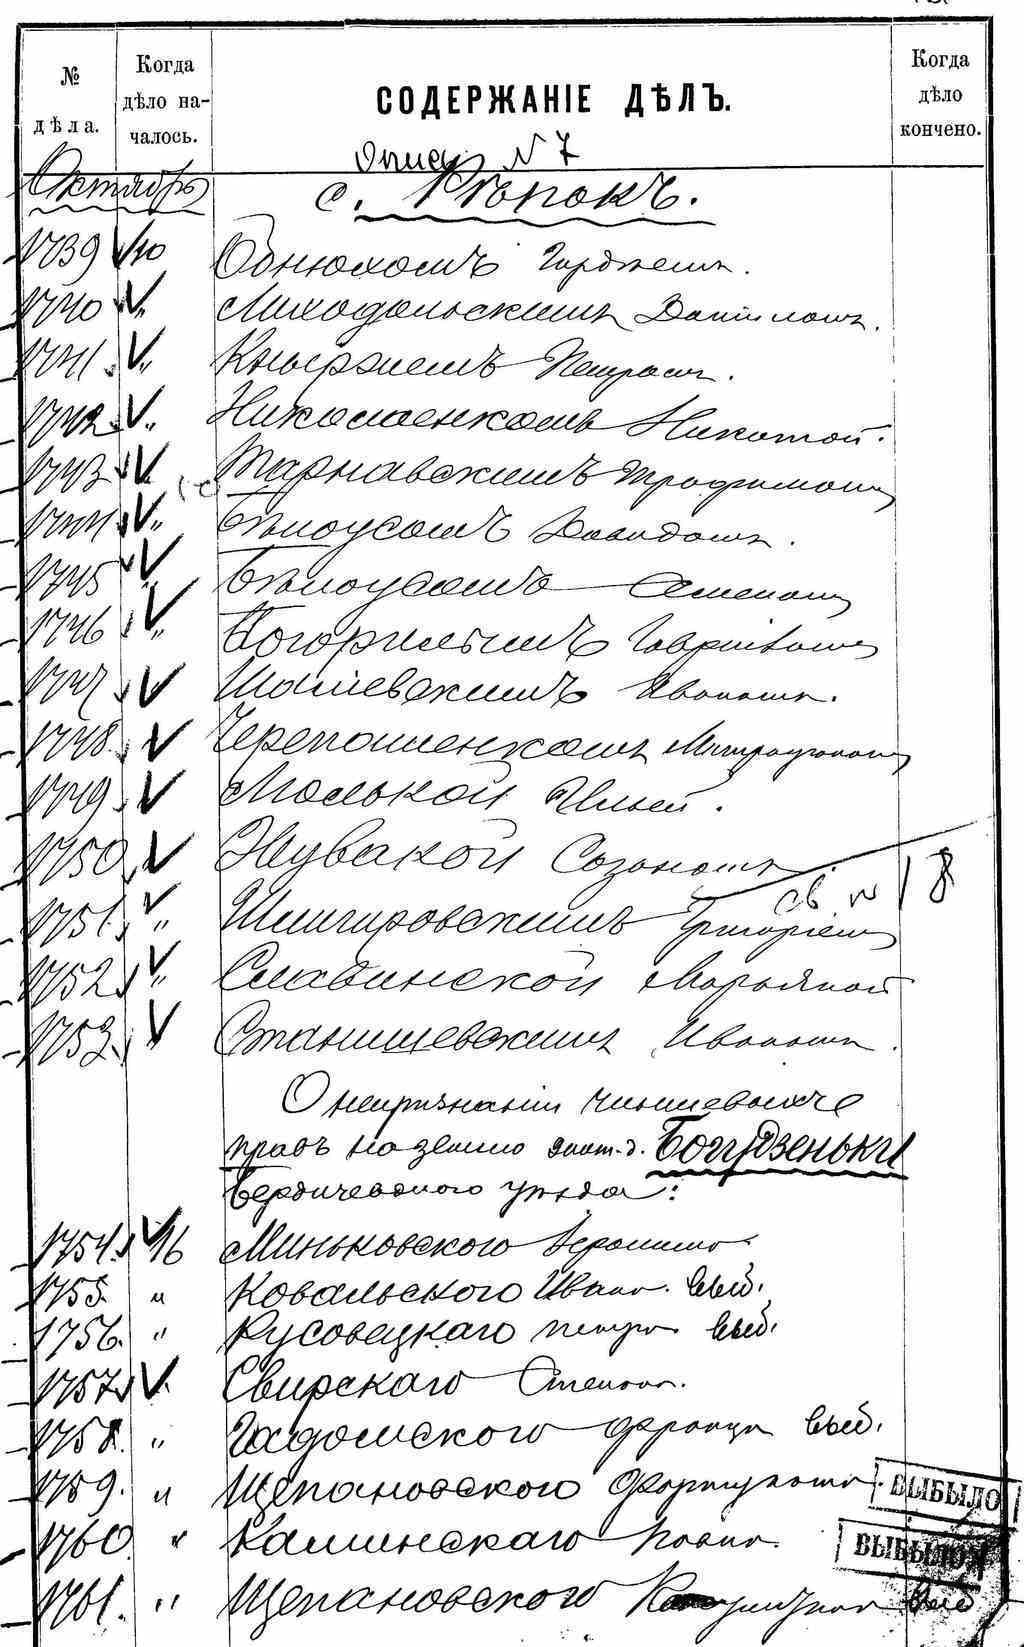 № дѣла.
Когда дѣло началось.
СОДЕРЖАНІЕ ДѢЛЪ.
Когда дѣло кончено.
Опись N 7
Октябрь
с. Рѣпокъ.
1739 10 Обнюхомъ
1740 " Миходольскимъ Даниломъ.
1741 " Кнырзиемъ Петромъ.
1742 " Николаенкомъ Никитой.
1743 Тарнавскимъ Трофимомъ
1744 " Бѣлоусомъ Давидомъ.
1745 " Бѣлоусомъ Семеномъ
1746 " Погорилымъ Гавриіломъ
1747 Шашевскимъ Иваномъ.
1748 Черепашенкомъ Митрофаномъ
1749 Малькой Ильей.
1750 Жувакой Созономъ
св N 18
1751. " Шпигировскимъ Григоріемъ
1752 " Славинской Марьяной
1753. " Станишевскимъ Иваномъ.
О непризнаніи чиншевыхъ
правъ на землю д. Богудзеньки
Бердичевскаго уѣзда:
1754. 16 Миньковского Іеронима
1755. " Ковальского Ивана. выб.
1756. " Русовецкаго Петра выб.
1757. Свирскаго Степана.
1758. " Гадомского Франца выб.
1759. " Щепановского
ВЫБЫЛО
1760 " Каминскаго
ВЫБЫЛО
1761. " Щепановского